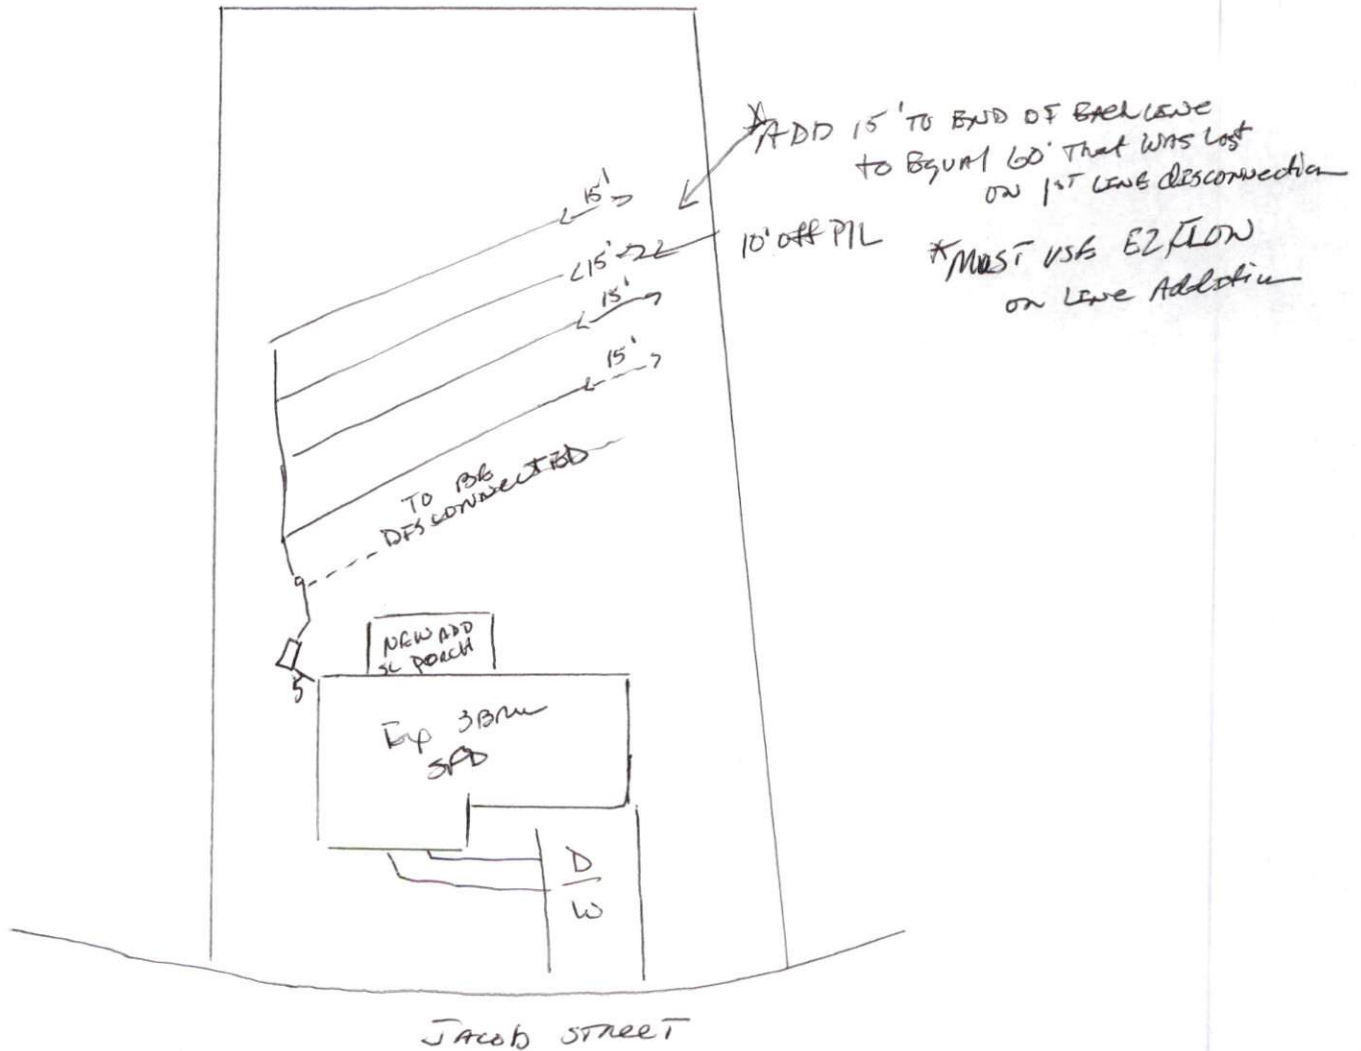 *ADD 15' TO END OF EACH LINE
to Equal 60' That was Lost
on 1ST LINE disconnection
15'
15'
10' off P/L
*MUST USE EZ FLOW
on Line Addition
15'
15'
TO BE
DISCONNECTED
NEW ADD
SC PORCH
5
3BRM
SFD
D
W
JACOB STREET